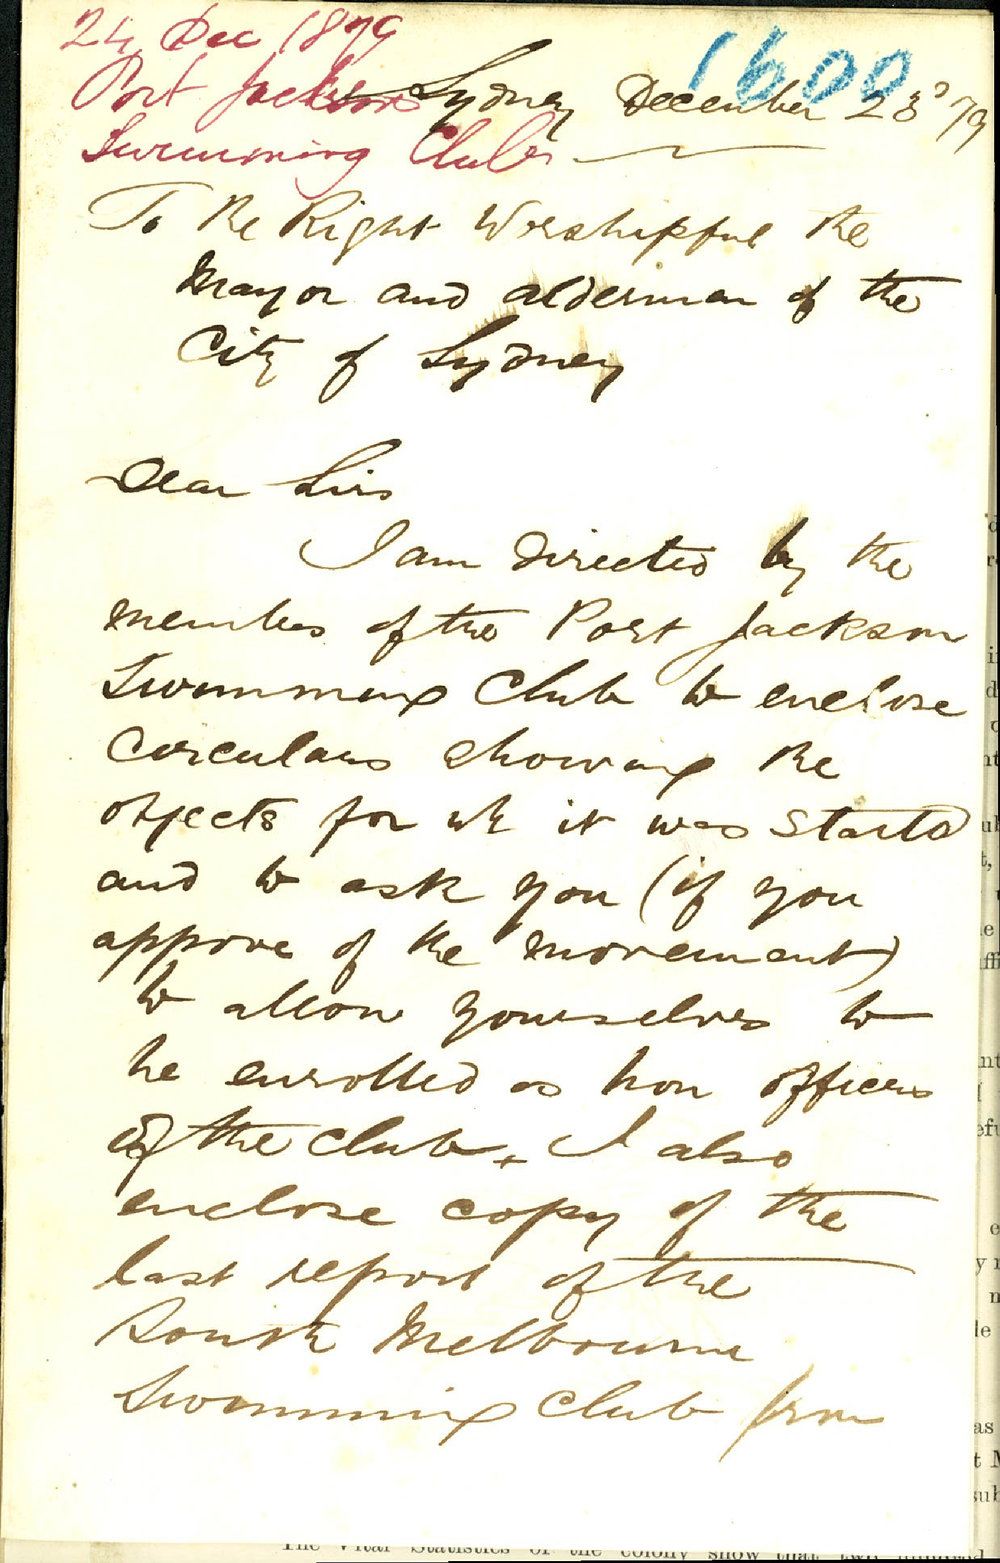 24 Dec 1879
Port Jackson
Swimming Club
1600
Sydney December 23d 79
To the Right Worshipful the
Mayor and aldermen of the
City of Sydney
Dear Sirs
I am directed by the
members of the Port Jackson
Swimming Club to enclose
circulars showing the
objects for wh it was started
and to ask you (if you
approve of the movement)
to allow yourselves to
be enrolled as hon officers
of the club. I also
enclose copy of the
last report of the
South Melbourne
Swimming Club from
The Vital Statistics of the colony show that two